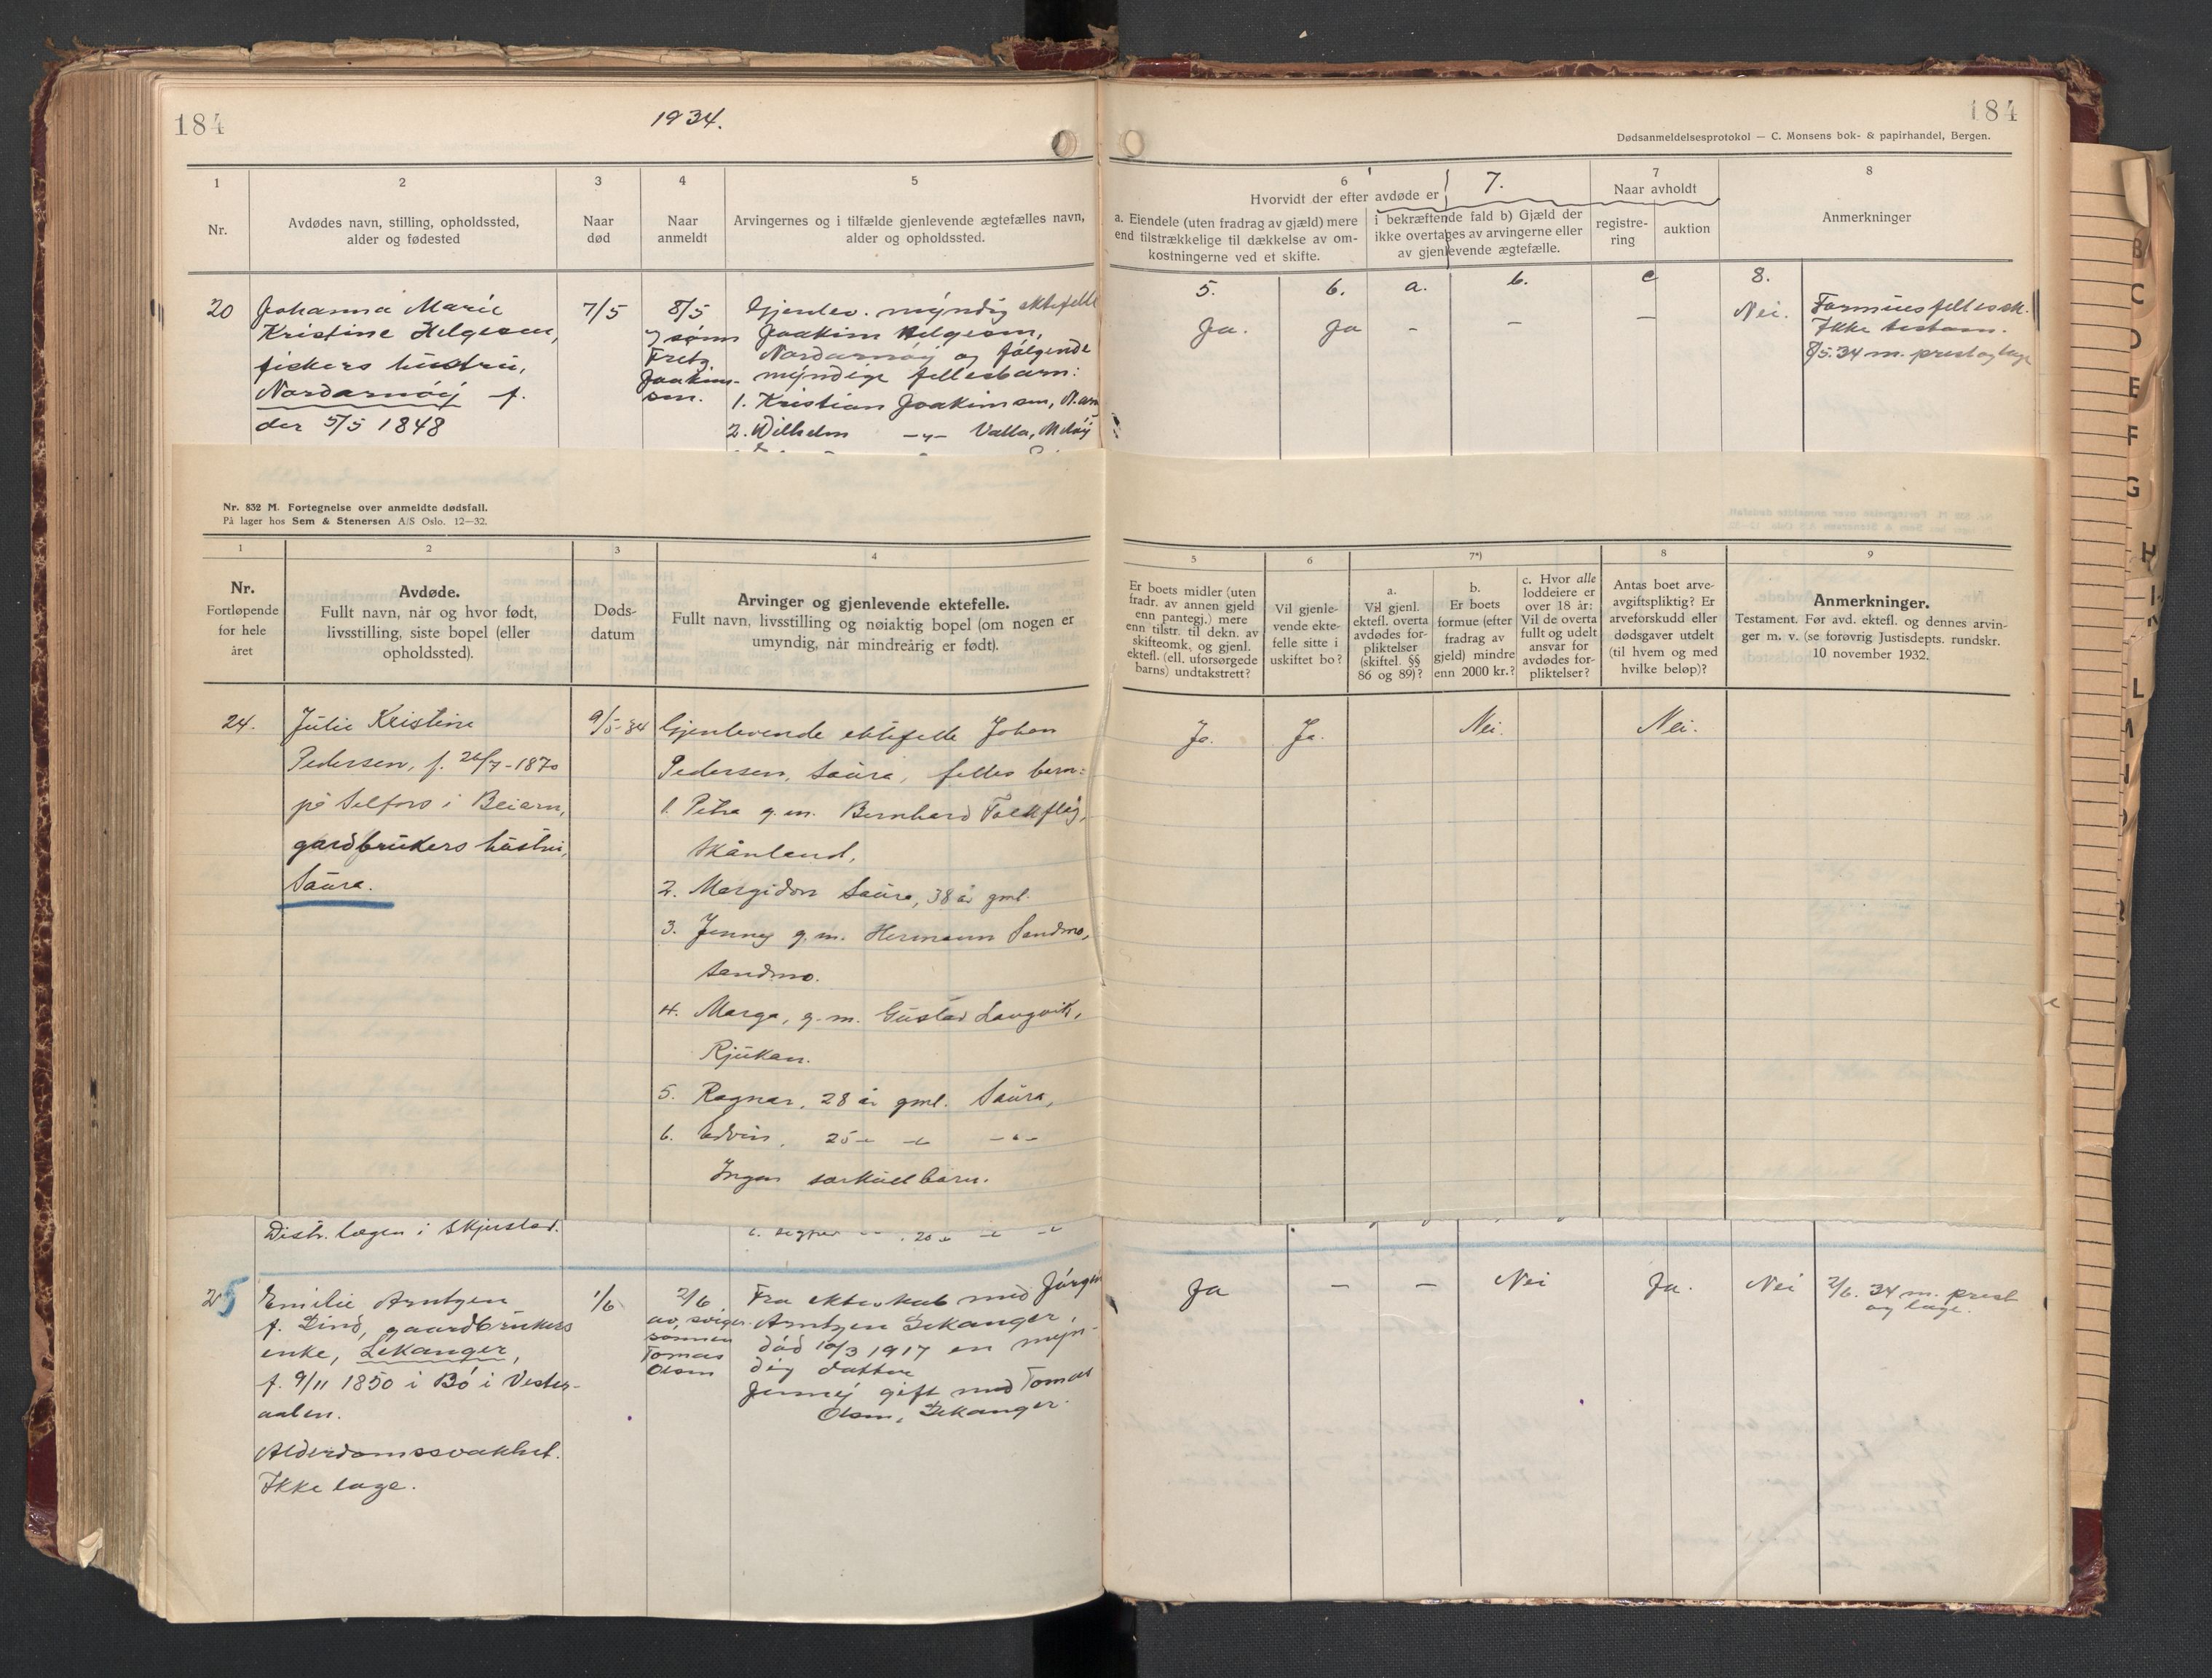 184
1934.
184
Dødsanmeldelsesprotokol — C. Monsens bok- & papirhandel, Bergen.
1
2
3
4
5
Nr.
Avdødes navn, stilling, opholdssted,
alder og fødested
Naar
død
Naar
anmeldt
Arvingernes og i tilfælde gjenlevende ægtefælles navn,
alder og opholdssted.
6
7.
7
8
Hvorvidt der efter avdøde er
Naar avholdt
a. Eiendele (uten fradrag av gjæld) mere
end tilstrækkelige til dækkelse av om-
kostningerne ved et skifte.
i bekræftende fald b) Gjæld der
ikke overtages av arvingerne eller
av gjenlevende ægtefælle.
registre-
ring
auktion
Anmerkninger
5.
6.
a.
b.
c
8.
20
Johanna Marie
Kristine Helgesen,
fiskers hustru,
Nordarnøij f.
den 5/5 1848
7/5
8/5
sønn
Fretz
Joakim-
sen.
Gjenlev. myndig ektefelle
Joakim Helgesen,
Nordarnøij og følgende
myndige fellesbarn:
1. Kristian Joakimsen, N.arn
2. Wilhelm -"- Valla, Meløij
Ja.
Ja
-
-
-
Nei.
Formuesfellessk.
Ikke testam.
8/5.34 m. prest og læge
Nr. 832 M. Fortegnelse over anmeldte dødsfall.
På lager hos Sem & Stenersen A/S Oslo. 12—32.
1
2
3
4
Nr.
Fortløpende
for hele
året
Avdøde.
Fullt navn, når og hvor født,
livsstilling, siste bopel (eller
opholdssted).
Døds-
datum
Arvinger og gjenlevende ektefelle.
Fullt navn, livsstilling og nøiaktig bopel (om nogen er
umyndig, når mindreårig er født).
5
6
7*)
8
9
Er boets midler (uten
fradr. av annen gjeld
enn pantegj.) mere
enn tilstr. til dekn. av
skifteomk. og gjenl.
ektefl. (ell. uforsørgede
barns) undtakstrett?
Vil gjenle-
vende ekte-
felle sitte i
uskiftet bo?
a.
Vil gjenl.
ektefl. overta
avdødes for-
pliktelser
(skiftel. §§
86 og 89)?
b.
Er boets
formue (efter
fradrag av
gjeld) mindre
enn 2000 kr.?
c. Hvor alle
loddeiere er
over 18 år:
Vil de overta
fullt og udelt
ansvar for
avdødes for-
pliktelser?
Antas boet arve-
avgiftspliktig? Er
arveforskudd eller
dødsgaver utdelt
(til hvem og med
hvilke beløp)?
Anmerkninger.
Testament. Før avd. ektefl. og dennes arvin-
ger m. v. (se forøvrig Justisdepts. rundskr.
10 november 1932.
24.
Julie Kristine
Pedersen, f. 26/7-1870
på Selfors i Beiarn,
gardbrukers hustru,
Saura.
9/5-34
Gjenlevende ektefelle Johan
Pedersen, Saura, felles barn:
1. Petra g.m. Bernhard
Skånland,
2. Margidon Saura, 38 år gml.
3. Jenny g.m. Hermann Sandmo,
Sandmo.
4. Marga, g.m. Gustav Langvik,
Rjukan.
5. Ragnar, 28 år gml. Saura,
6. Edvin, 25 -"- -"- -"-
Ingen særkullbarn.
Ja.
Ja.
Nei.
Nei.
Distr. lægen i Skjerstad.
25
Emilie Arntzen
f. Lind, gaardbrukers
enke, Lekanger,
f. 9/11 1850 i Bø i Vester-
aalen.
Alderdomssvakhet.
Ikke læge.
1/6
2/6
av sviger-
sønnen
Tomas
Olsen
Fra ekteskab med Jørgen
Arntzen Lekanger,
død 10/3 1917 en myn-
dig datter
Jenny gift med Tomas
Olsen, Lekanger.
Ja
-
-
Nei
Ja.
Nei
2/6. 34 m. prest
og læge.
B
C
D
E
F
G
H
L